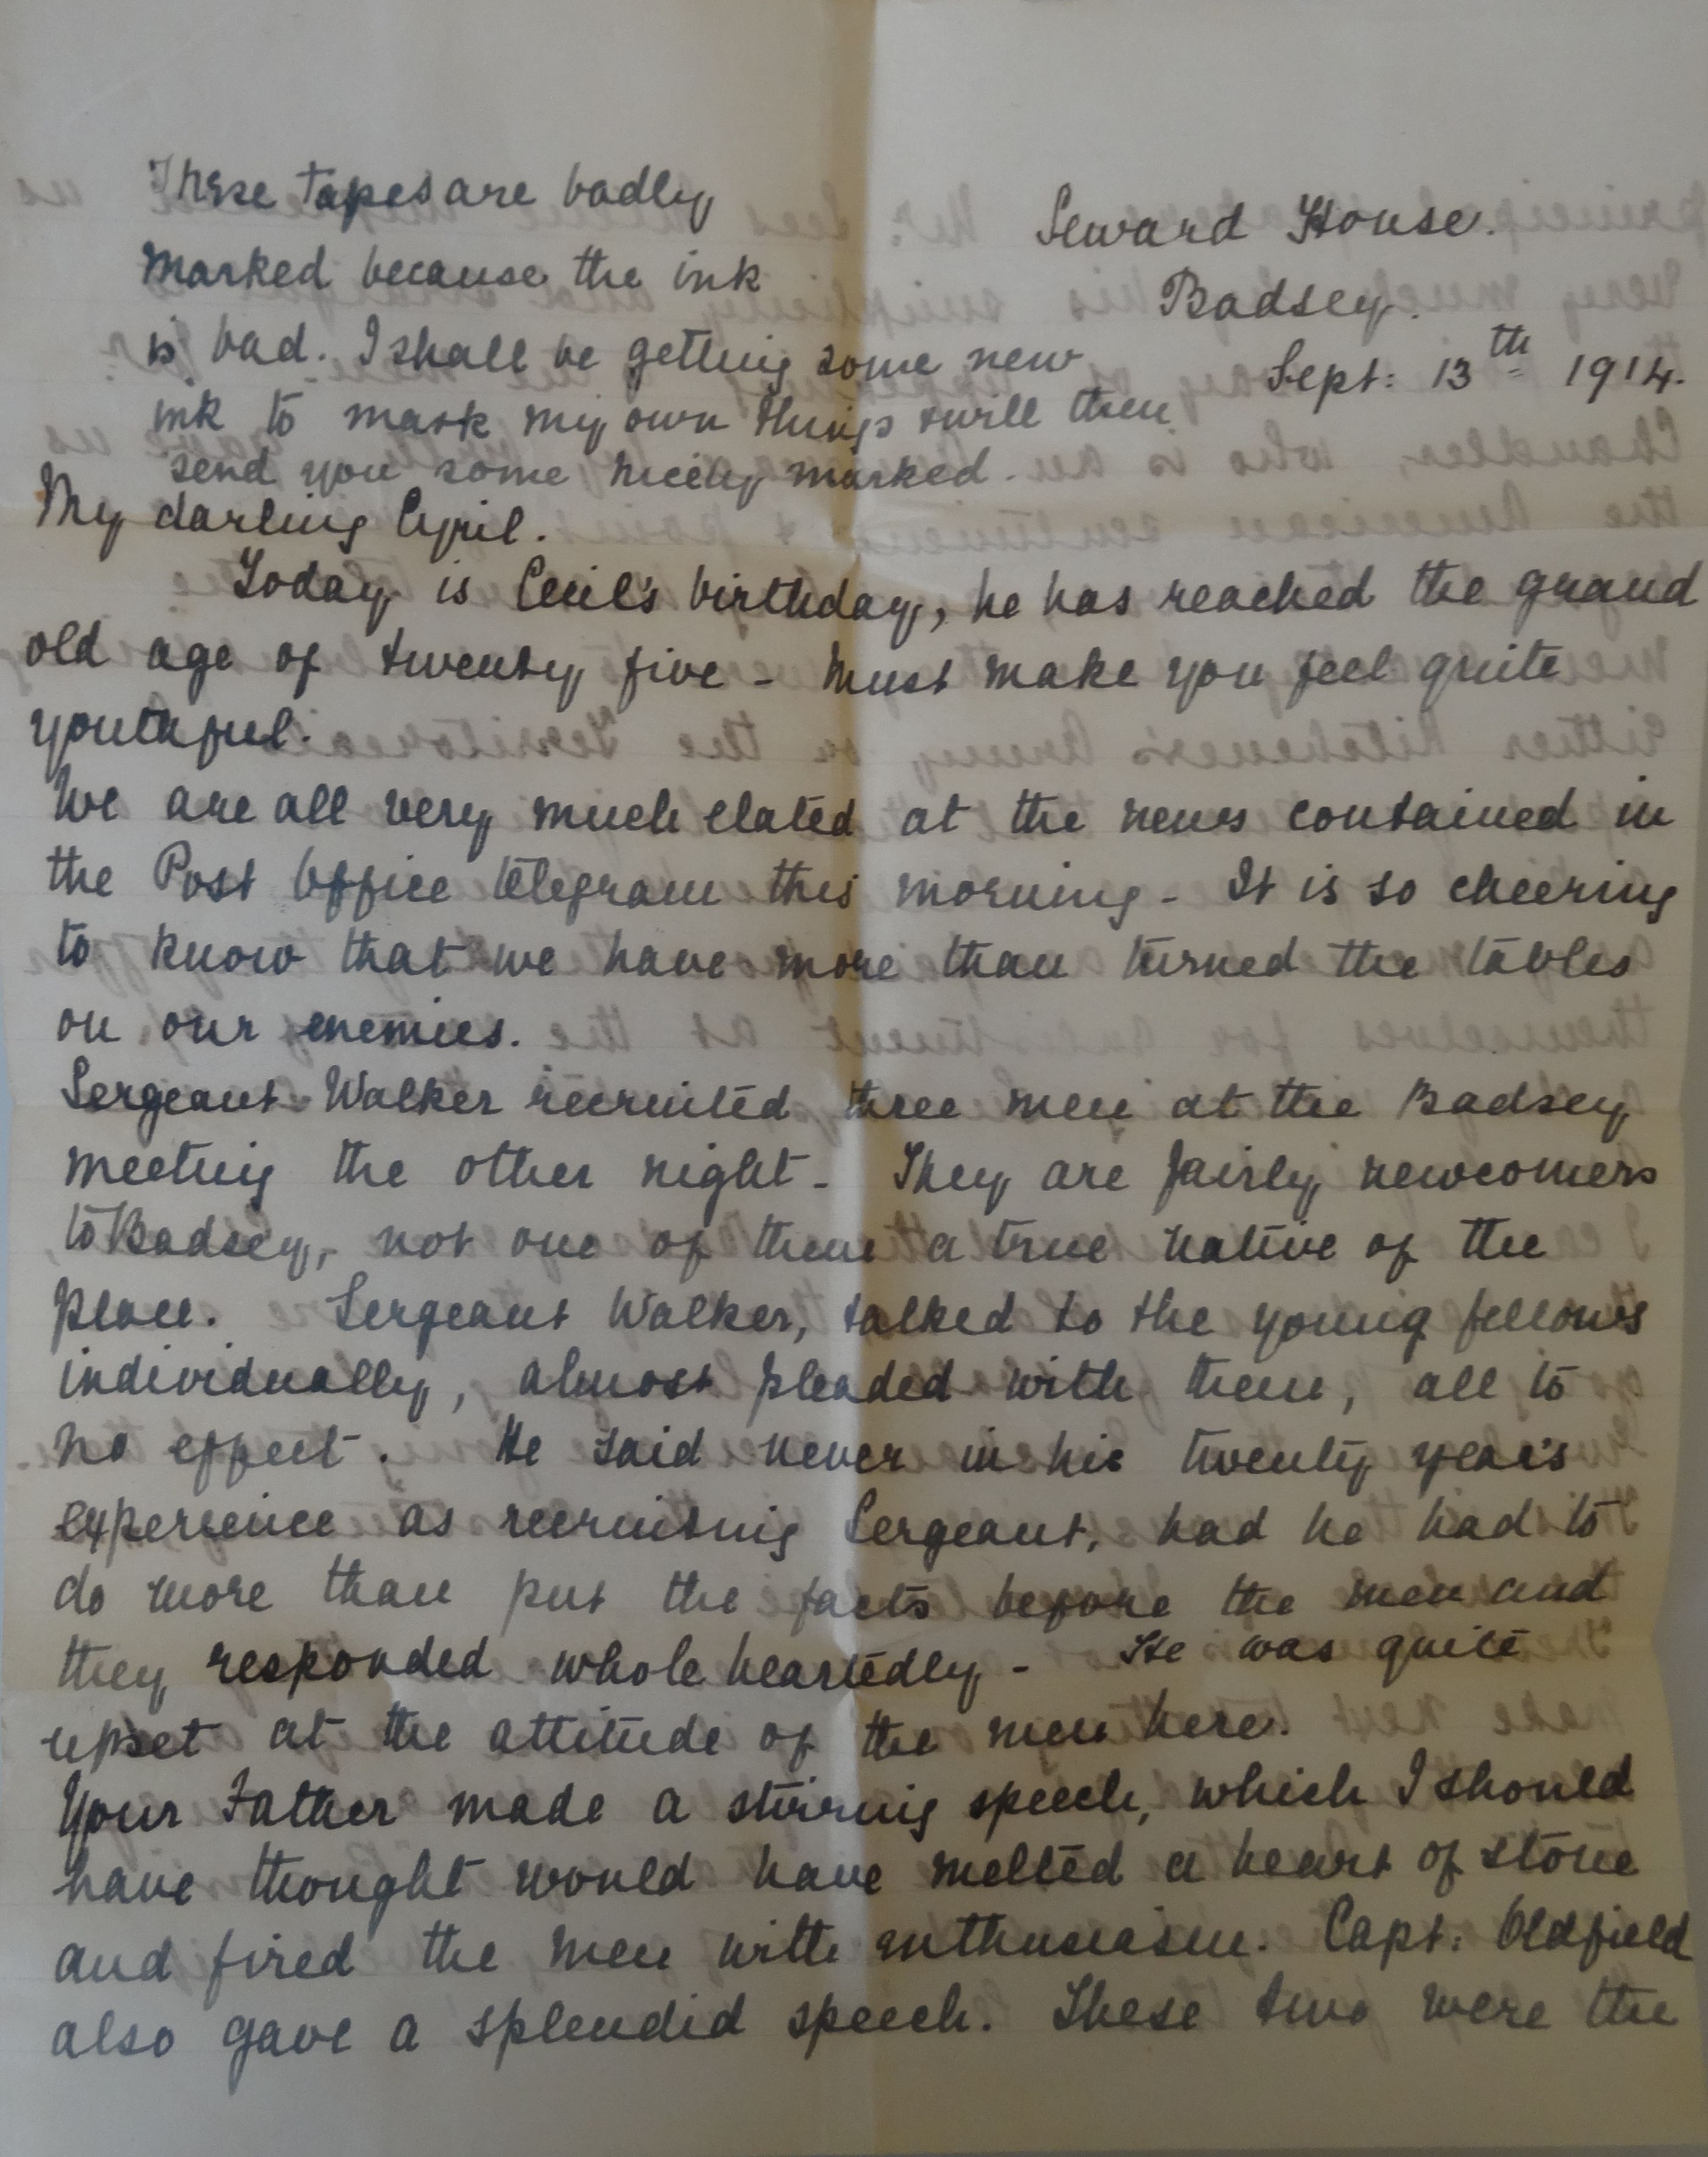 These tapes are badly
marked because the ink
is bad. I shall be getting some new
ink to mark my own things & will then
send you some nicely marked.
Seward House.
Badsey.
Sept: 13th 1914.
My darling Cyril.
Today is Cecil's birthday, he has reached the grand
old age of twenty five - must make you feel quite
youthful.
We are all very much elated at the news contained in
the Post Office telegram this morning - It is so cheering
to know that we have more than turned the tables
on our enemies.
Sergeant Walker recruited three men at the Badsey
meeting the other night - They are fairly newcomers
to Badsey, not one of them a true native of the
place. Sergeant Walker, talked to the young fellows
individually, almost pleaded with them, all to
no effect. He said never in his twenty years
experience as recruiting Sergeant, had he had to
do more than put the facts before the men and
they responded whole heartedly - He was quite
upset at the attitude of the men here.
Your Father made a stirring speech, which I should
have thought would have melted a heart of stone
and fired the men with enthusiasm. Capt: Oldfield
also gave a splendid speech. These two were the